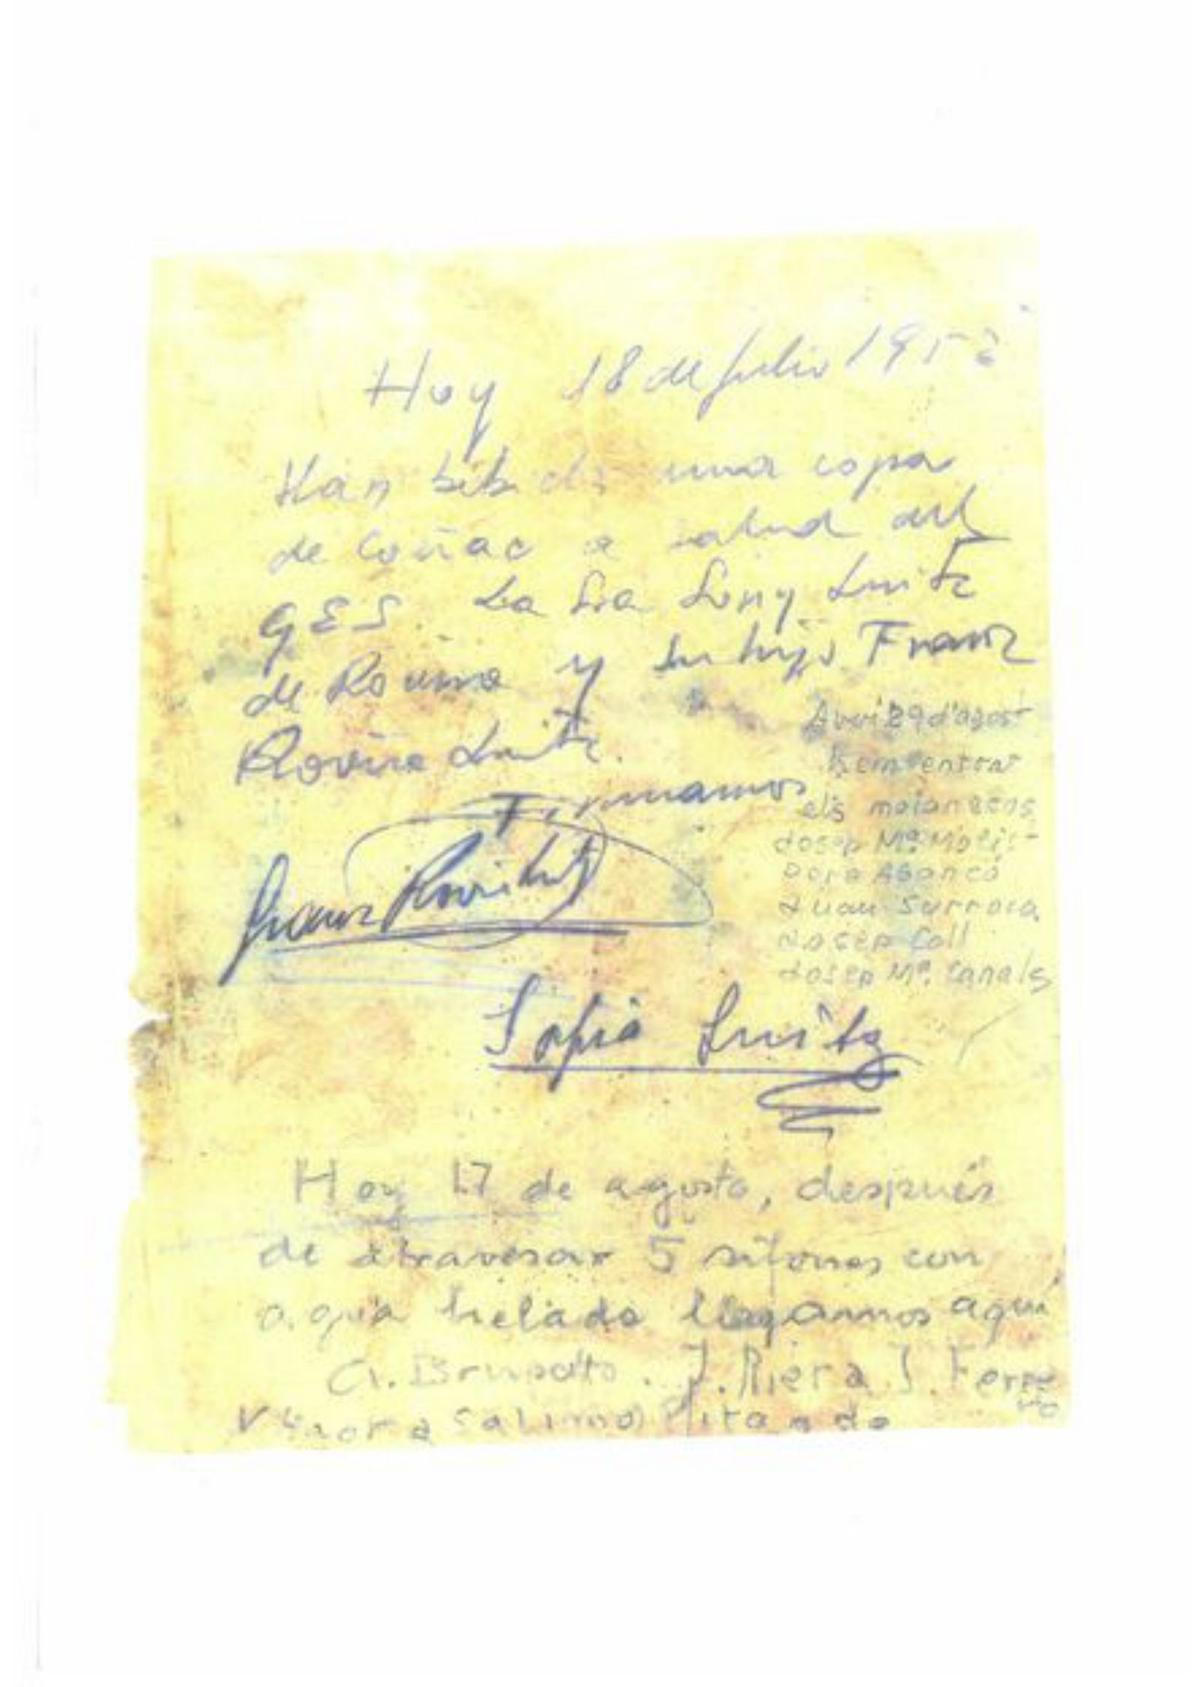 Hoy 18 de Julio 195
Han bibido una copa
de Coñac a salud del
GES. La Sra Sony Luitz
de Rovira y su hijo Franz
Rovira Luitz.
Firmamos
Franz Rovira Luitz
Sofia Luitz
Avui 29 d'agost
hem entrat
els moianesns
Josep Mª Molist
Pere
Juan Surroca
Josep Coll
Josep Mª Canals
Hoy 17 de agosto, después
de atravesar 5 sifones con
agua helada llegamos aquí
J. Riera J. Ferre
y ahora salimos